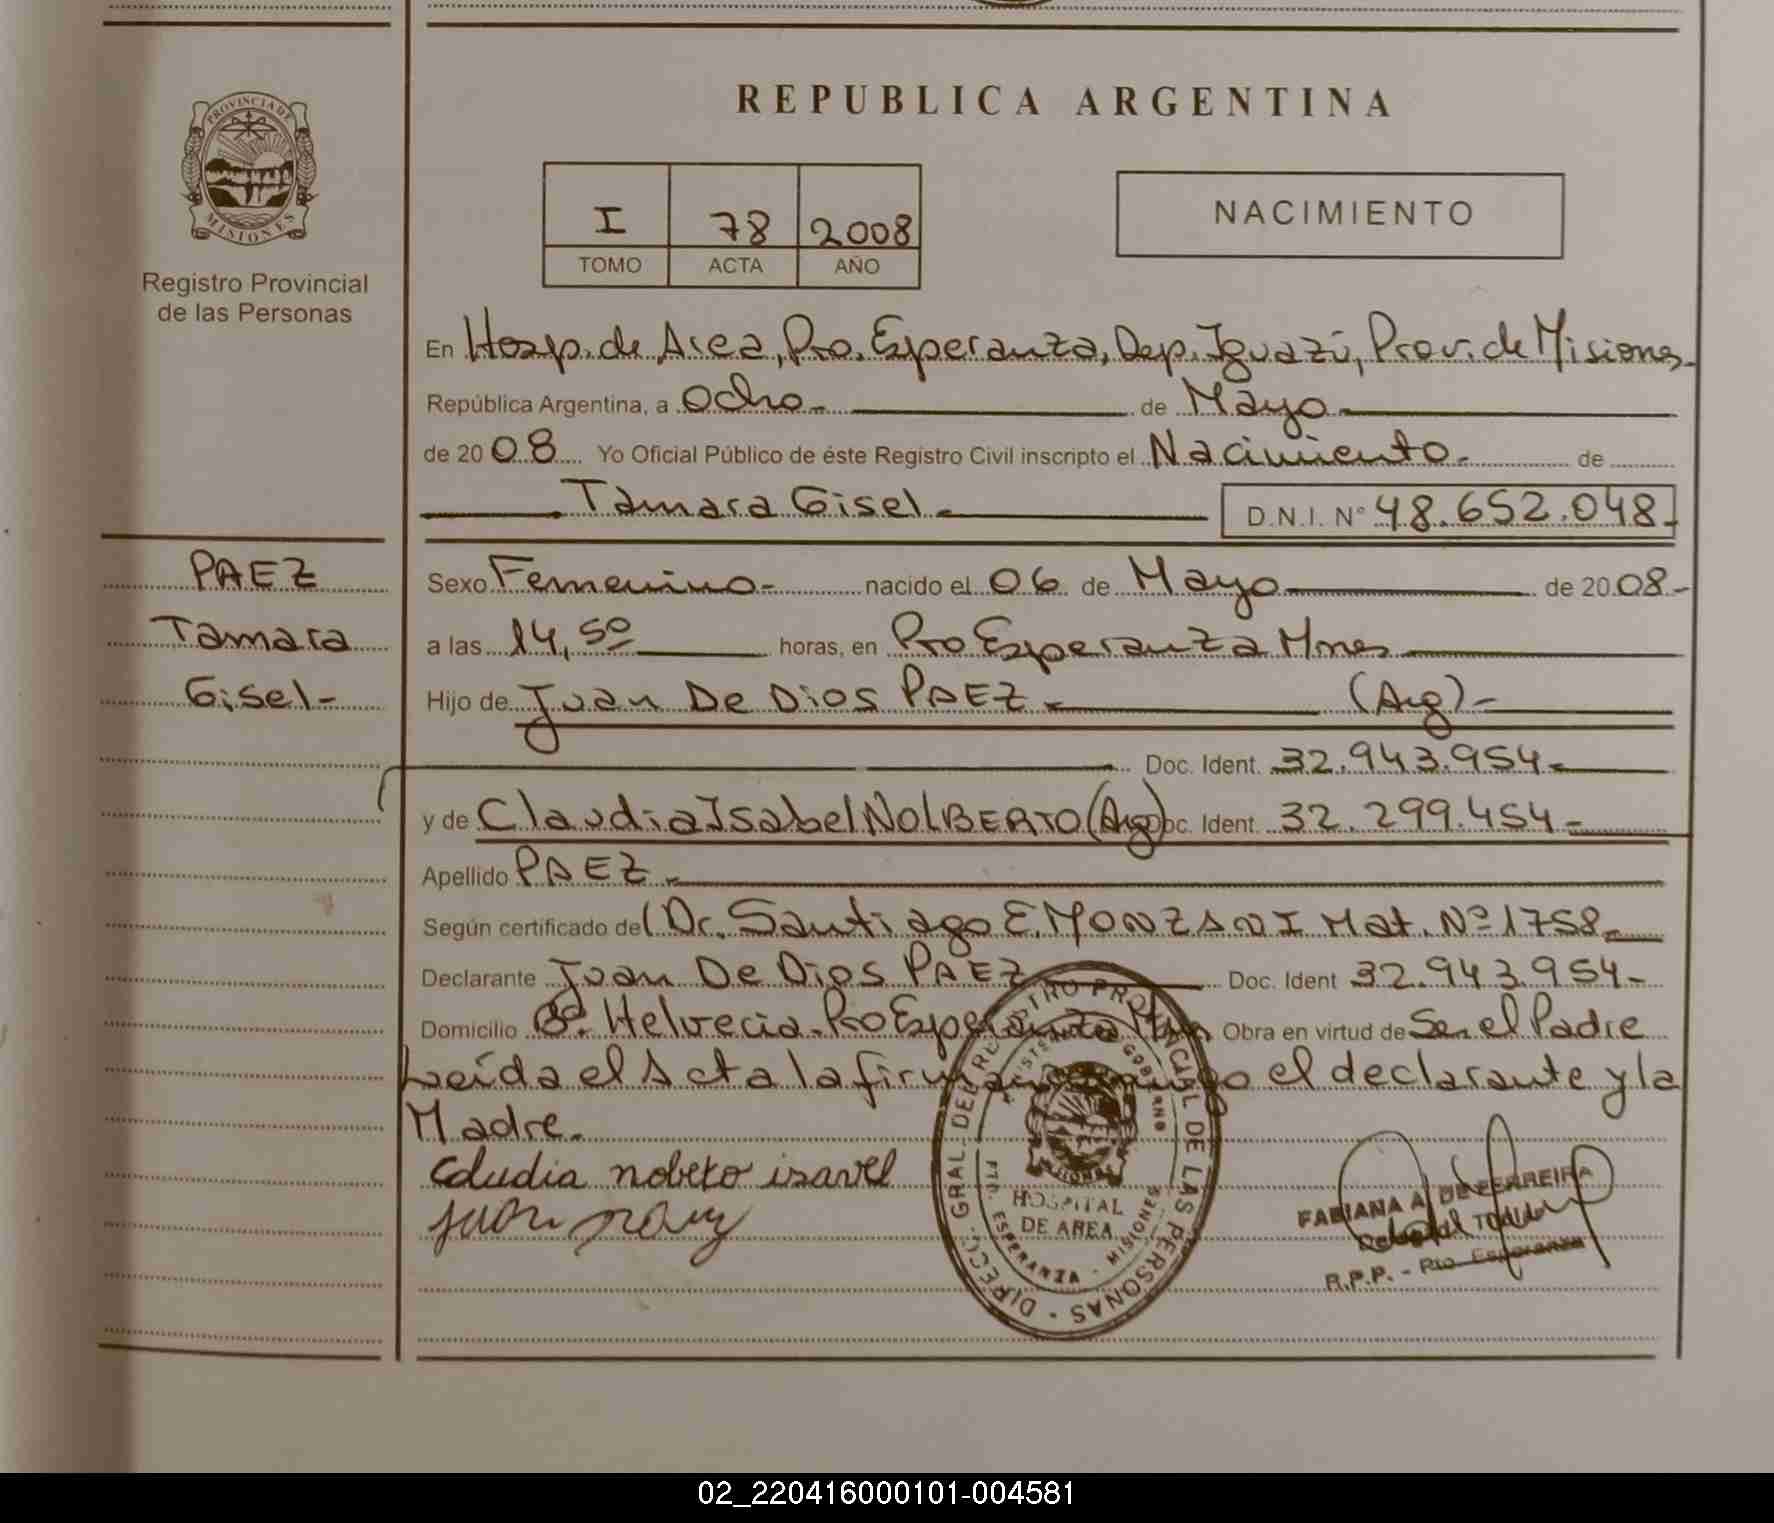 REPUBLICA ARGENTINA
PROVINCIA DE
MISIONES
Registro Provincial
de las Personas
I 78 2008
TOMO ACTA AÑO
NACIMIENTO
En Hosp. de Area, Pto. Esperanza, Dep. Iguazú, Prov. de Misiones-
República Argentina, a Ocho- de Mayo-
de 20 08 Yo Oficial Público de éste Registro Civil inscripto el Nacimiento- de
Tamara Gisel- D.N.I. Nº 48.652.048-
PAEZ
Tamara
Gisel-
Sexo Femenino- nacido el 06 de Mayo de 20 08-
a las 14,50 horas, en Pto Esperanza Mnes
Hijo de Juan De Dios PAEZ- (Arg)-
Doc. Ident. 32.943.954-
y de Claudia Isabel NOLBERTO (Arg) Doc. Ident. 32.299.454-
Apellido PAEZ-
Según certificado del Dr. Santiago E. MONZANI Mat. Nº 1758-
Declarante Juan De Dios PAEZ Doc. Ident 32.943.954-
Domicilio Bº. Helvecia-Pto Esperanza Obra en virtud de Ser el Padre
Leída el Acta la firman conmigo el declarante y la
Madre.
cludia nobeto isavel
juan
DIRECC. GRAL. DEL REGISTRO PROVINCIAL DE LAS PERSONAS
MINISTERIO DE GOBIERNO
HOSPITAL
DE AREA
PTO. ESPERANZA - MISIONES
FABIANA A. DE FERREIRA
R.P.P. - Pto. Esperanza
02_220416000101-004581